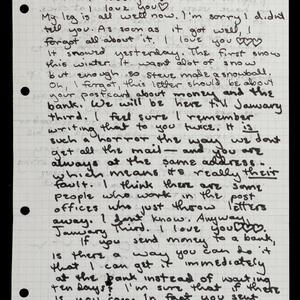 I love you♡
My leg is all well now. I'm sorry I didnt
tell you. As soon as it got well, I
forgot all about it. I love you ♡♡♡
It snowed yesterday. The first snow
this winter. It wasnt alot of snow
but enough so Steve made a snowball.
Oh, I forgot, this letter should be about
your postcard about money at the
bank. We will be here till January
third. I feel sure I remember
writing that to you twice. It is
such a horror the way we dont
get all the mail — and you are
always at the same address.
which means it's really their
fault. I think there are some
people who work in the post
offices who just throw letters
away. I dont know. Anyway,
January Third. I love you ♡♡♡.
If you send money to a bank,
is there a way you can do it
that I can get it immediately
at the bank instead of waiting
ten days? I'm sure that if there
is you can. In fact you sent